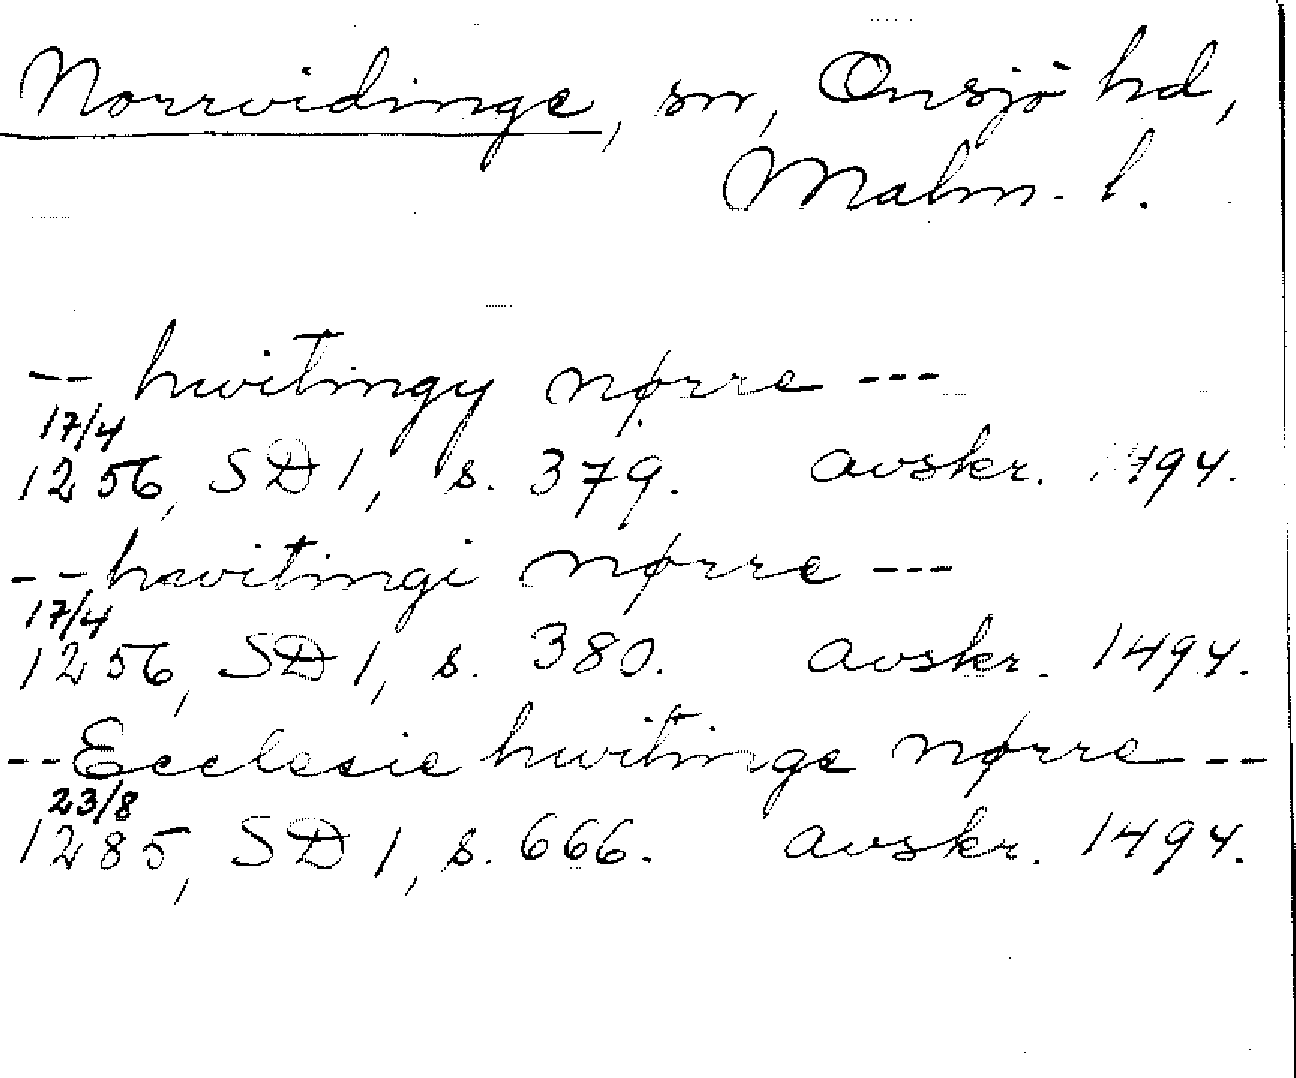 Norrvidinge, sn, Onsjö hd,
Malm. l.
-- hwitingy nørre ---
17/4
1256, SD 1, s. 379. avskr. 1494.
-- hwitingi nørre ---
17/4
1256, SD 1, s. 380. avskr. 1494.
-- Ecclesie hwitinge nørre --
23/8
1285, SD 1, s. 666. avskr. 1494.